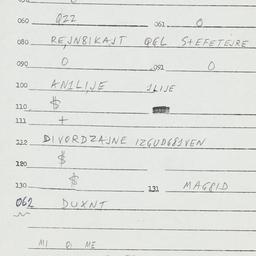 060 QZZ 061 0
080 REJNBIKAJT QEL S+EFETEJRE
090 0 091 0
100 ANILIJE JLIJE
110 $
111 +
112 DIVORDZAJNE IZGUDGBIVEN
120 $
130 $ 131 MAGBID
062 DUXNT
MI DI ME